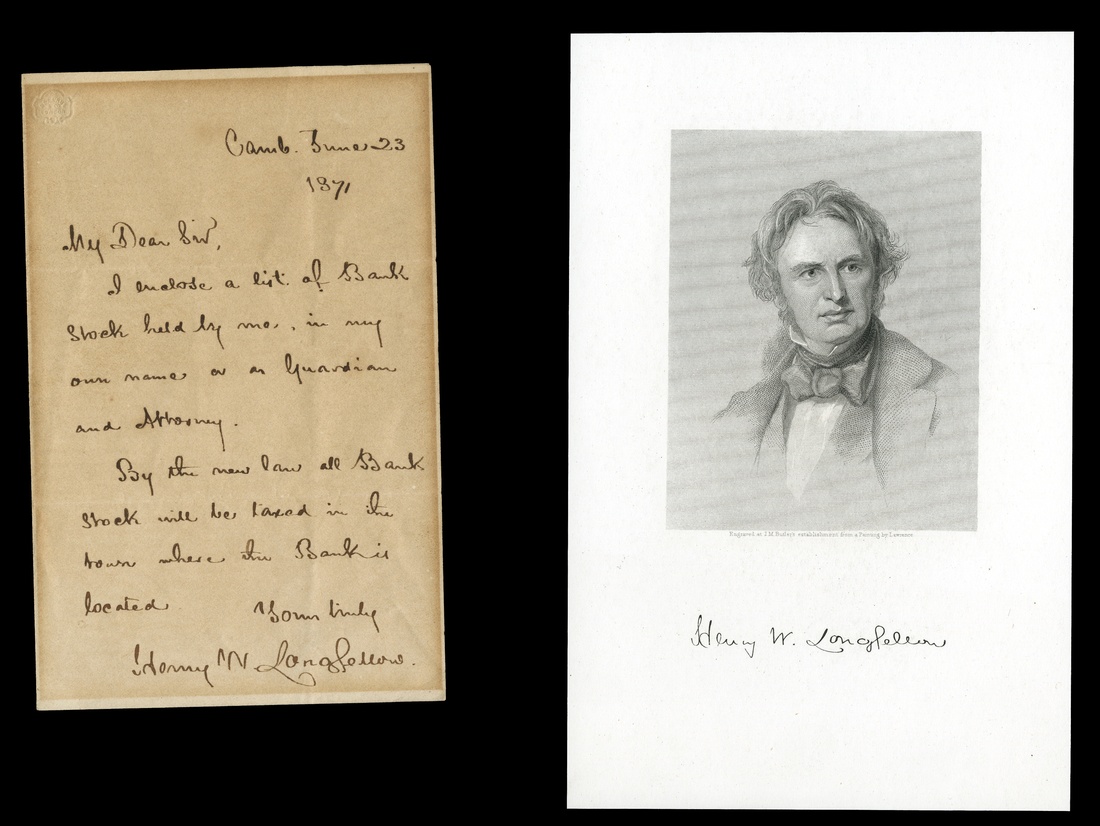 Camb. June 23
1871
My Dear Sir,
I enclose a list of Bank
Stock held by me, in my
own name or as Guardian
and Attorney.
By the new law all Bank
Stock will be taxed in the
town where the Bank is
located.
Yours truly
Henry W. Longfellow.
Engraved at J.M. Butler's establishment from a Painting by Lawrence
Henry W. Longfellow